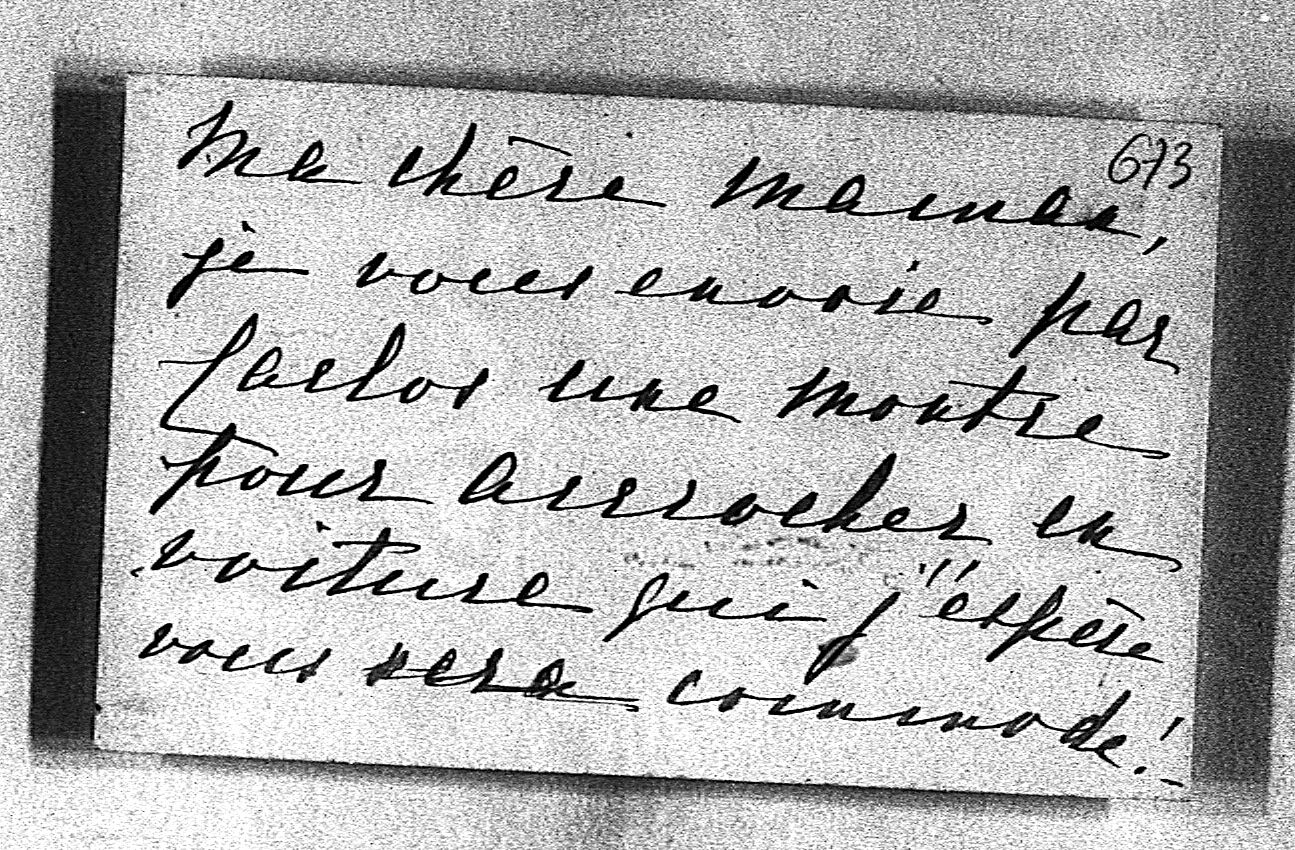 673
Ma chère maman,
je vous envoie par
Carlos une montre
pour accrocher en
voiture qui j'éspère
vous sera commode!